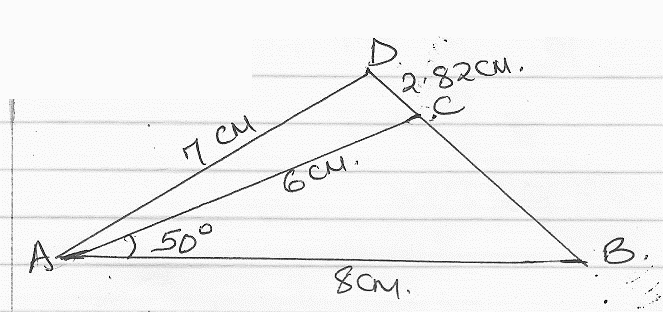 D
2.82CM.
C
7 CM
6CM.
50°
A
B.
8CM.